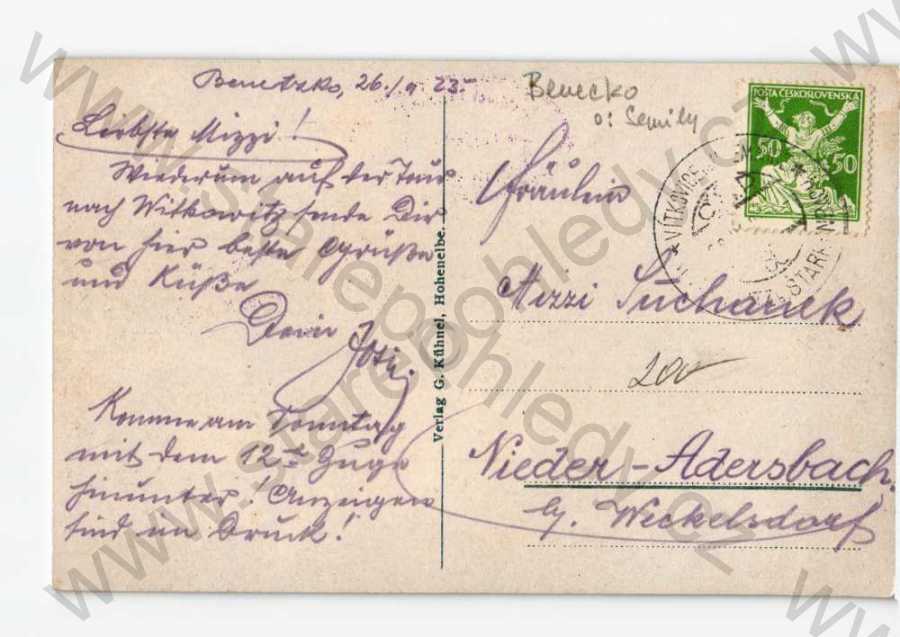 Benetzko, 26./ 23.
Liebste Mizzi!
Wiederum auf der Tour
nach Witkowitz, sende Dir
von hier beste Grüße
und Küße
Dein
Komme am Sonntag
mit dem 12ten Zuge
hinunter! Anzeigen
sind im Druck!
Verlag G. Kühnel, Hohenelbe.
Benecko
o: Semily
POŠTA ČESKOSLOVENSKÁ
50 50
VÍTKOVICE
Fräulein
Mizzi Suchanek
200
Nieder-Adersbach
bg. Weckelsdorf
www.stare-pohledy.cz